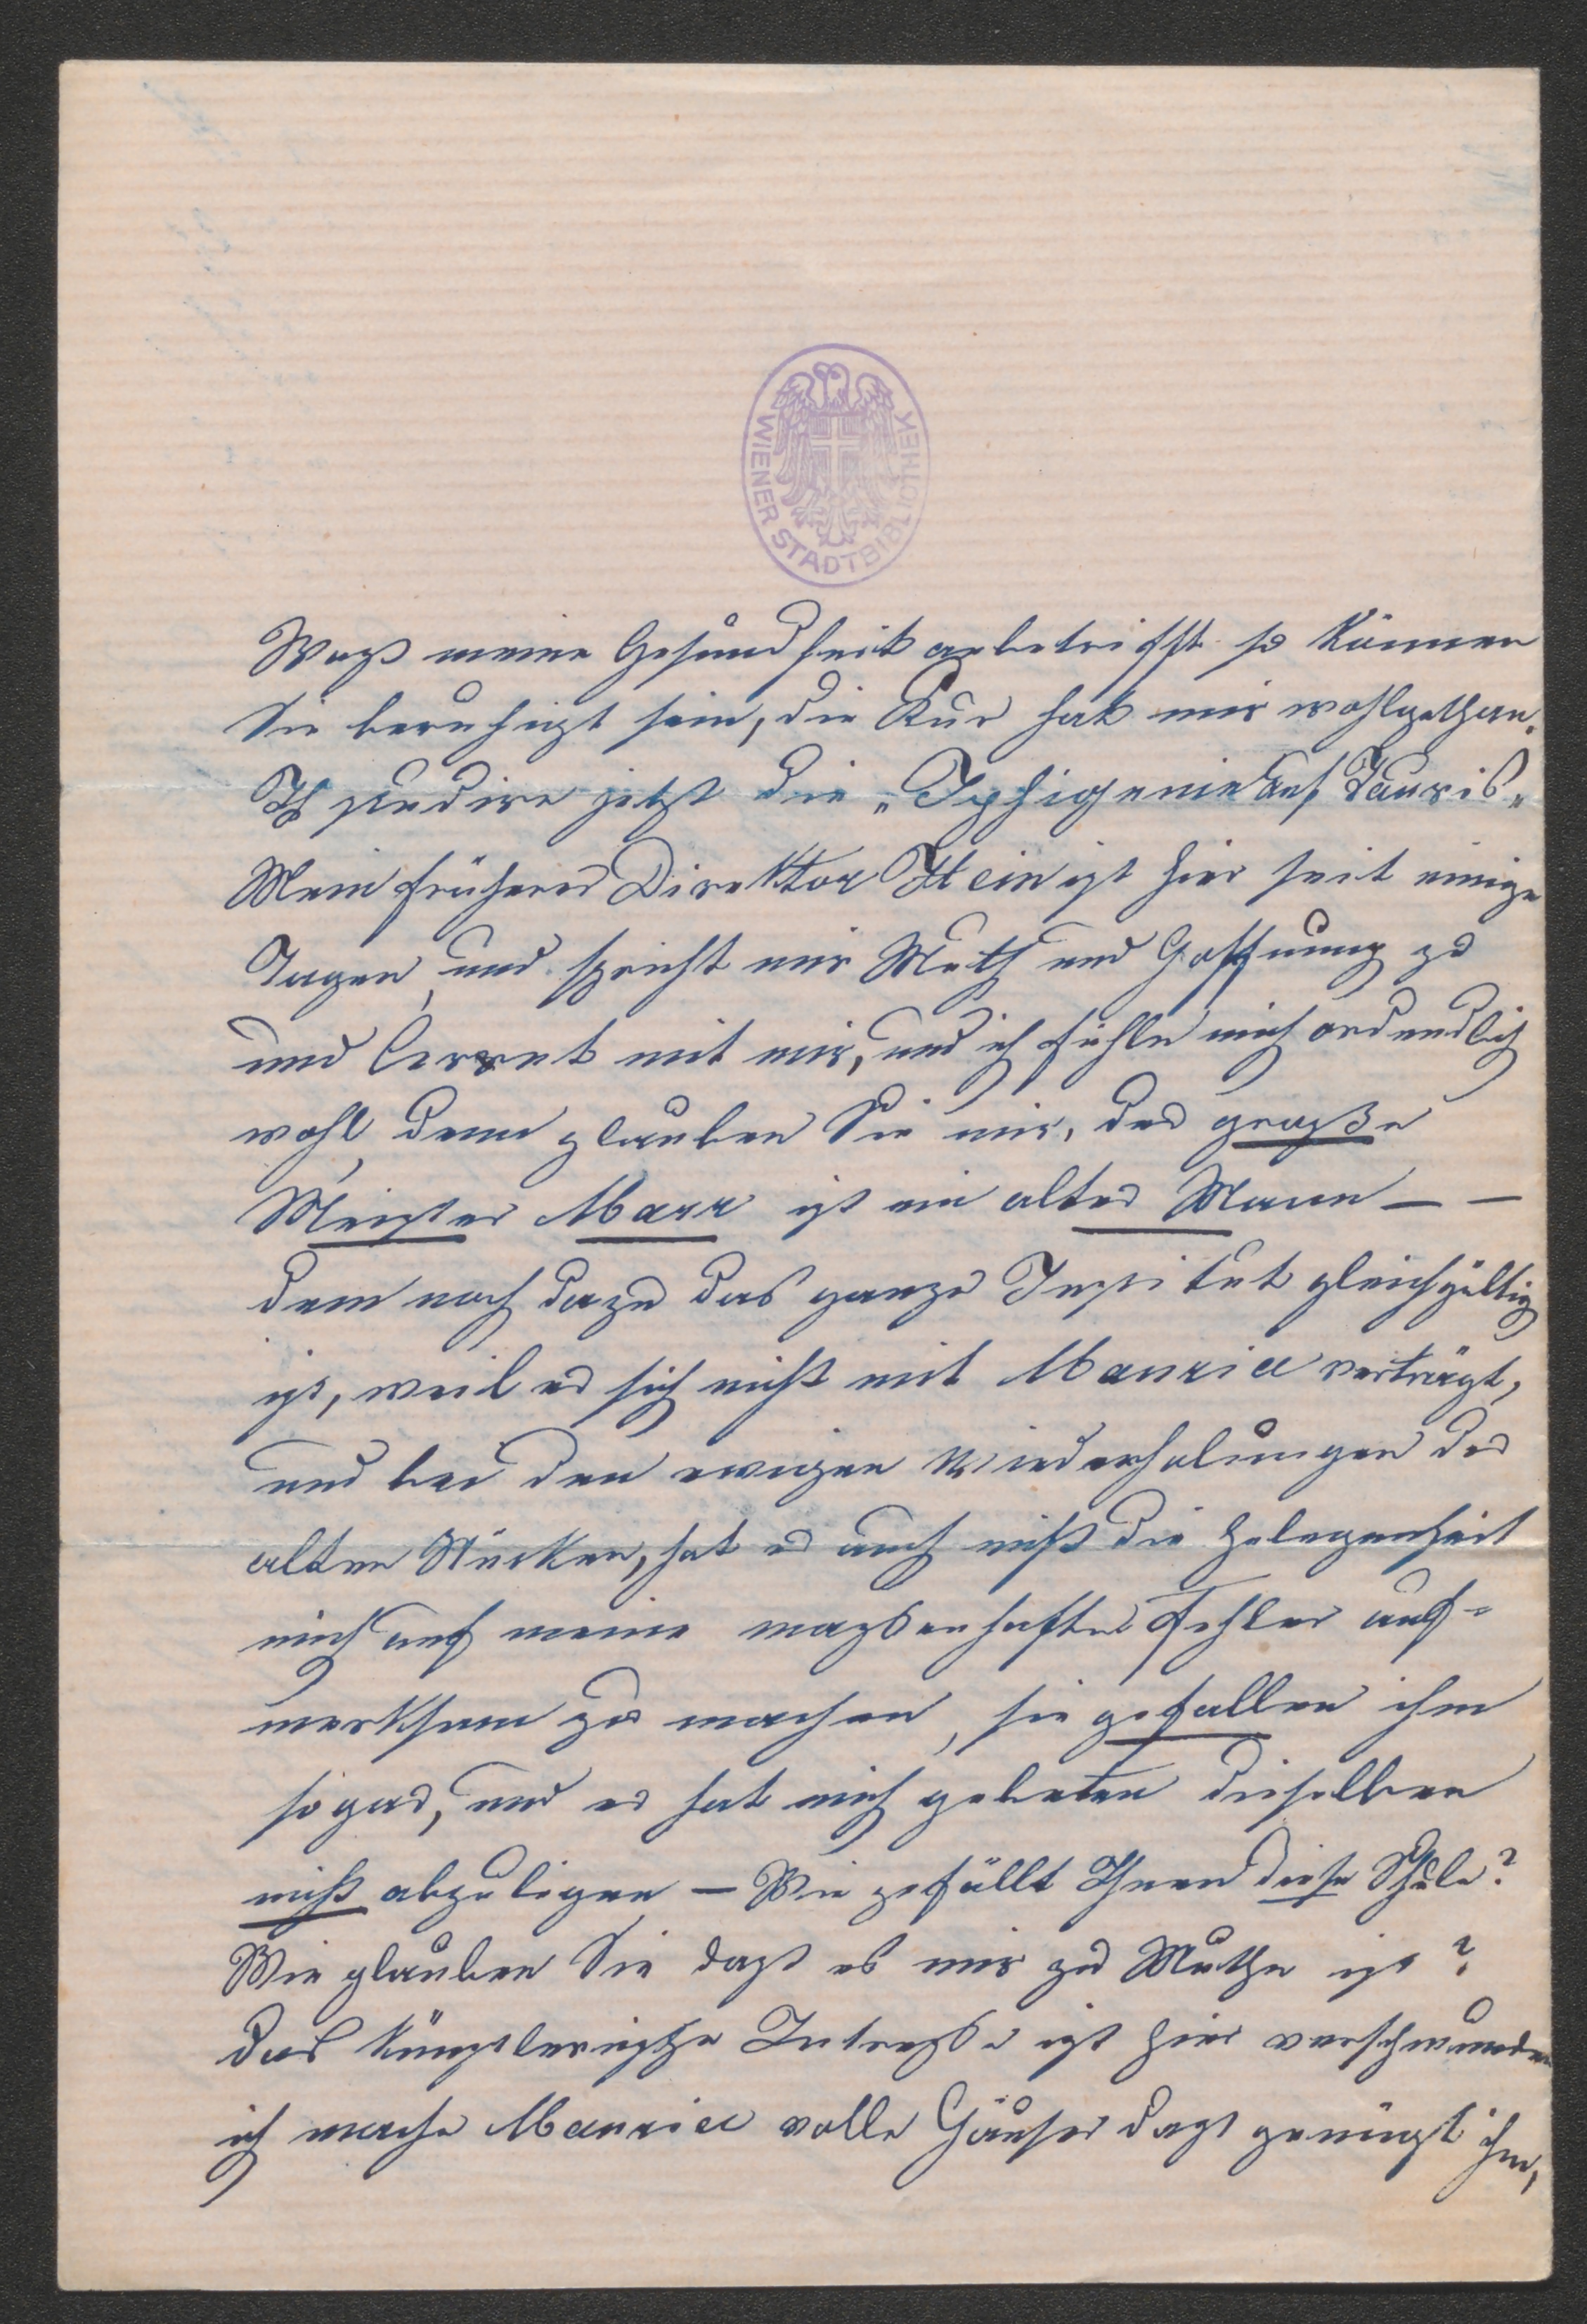 WIENER STADTBIBLIOTHEK
Wass meine Gesundheit anbetrifft so können
Sie beruhigt sein, die Kur hat mir wohlgethan.
Ich studire jetzt die „Iphigenie auf Tauris„
Mein früherer Direktor Hein ist hier seit einige
Tagen, und spricht mir Muth und Hoffnung zu
und lernt mit mir, und ich fühle mich ordendlich
wohl, denn glauben Sie mir, der große
Meister Marr ist ein alter Mann – –
dem noch dazu das ganze Institut gleichgültig
ist, weil er sich nicht mit Maurice verträgt,
und bei den ewigen Wiederholungen der
alten Stücken, hat er auch nicht die Gelegenheit
mich auf meine massenhaften Fehler auf-
merksam zu machen, sie gefallen ihm
sogar, und er hat mich gebeten dieselben
nicht abzulegen – Wie gefällt Ihnen diese Schule?
Wie glauben Sie dass es mir zu Muthe ist?
Das künstlerische Intresse ist hier verschwunden
ich mache Maurice volle Häuser dass genügt ihm,